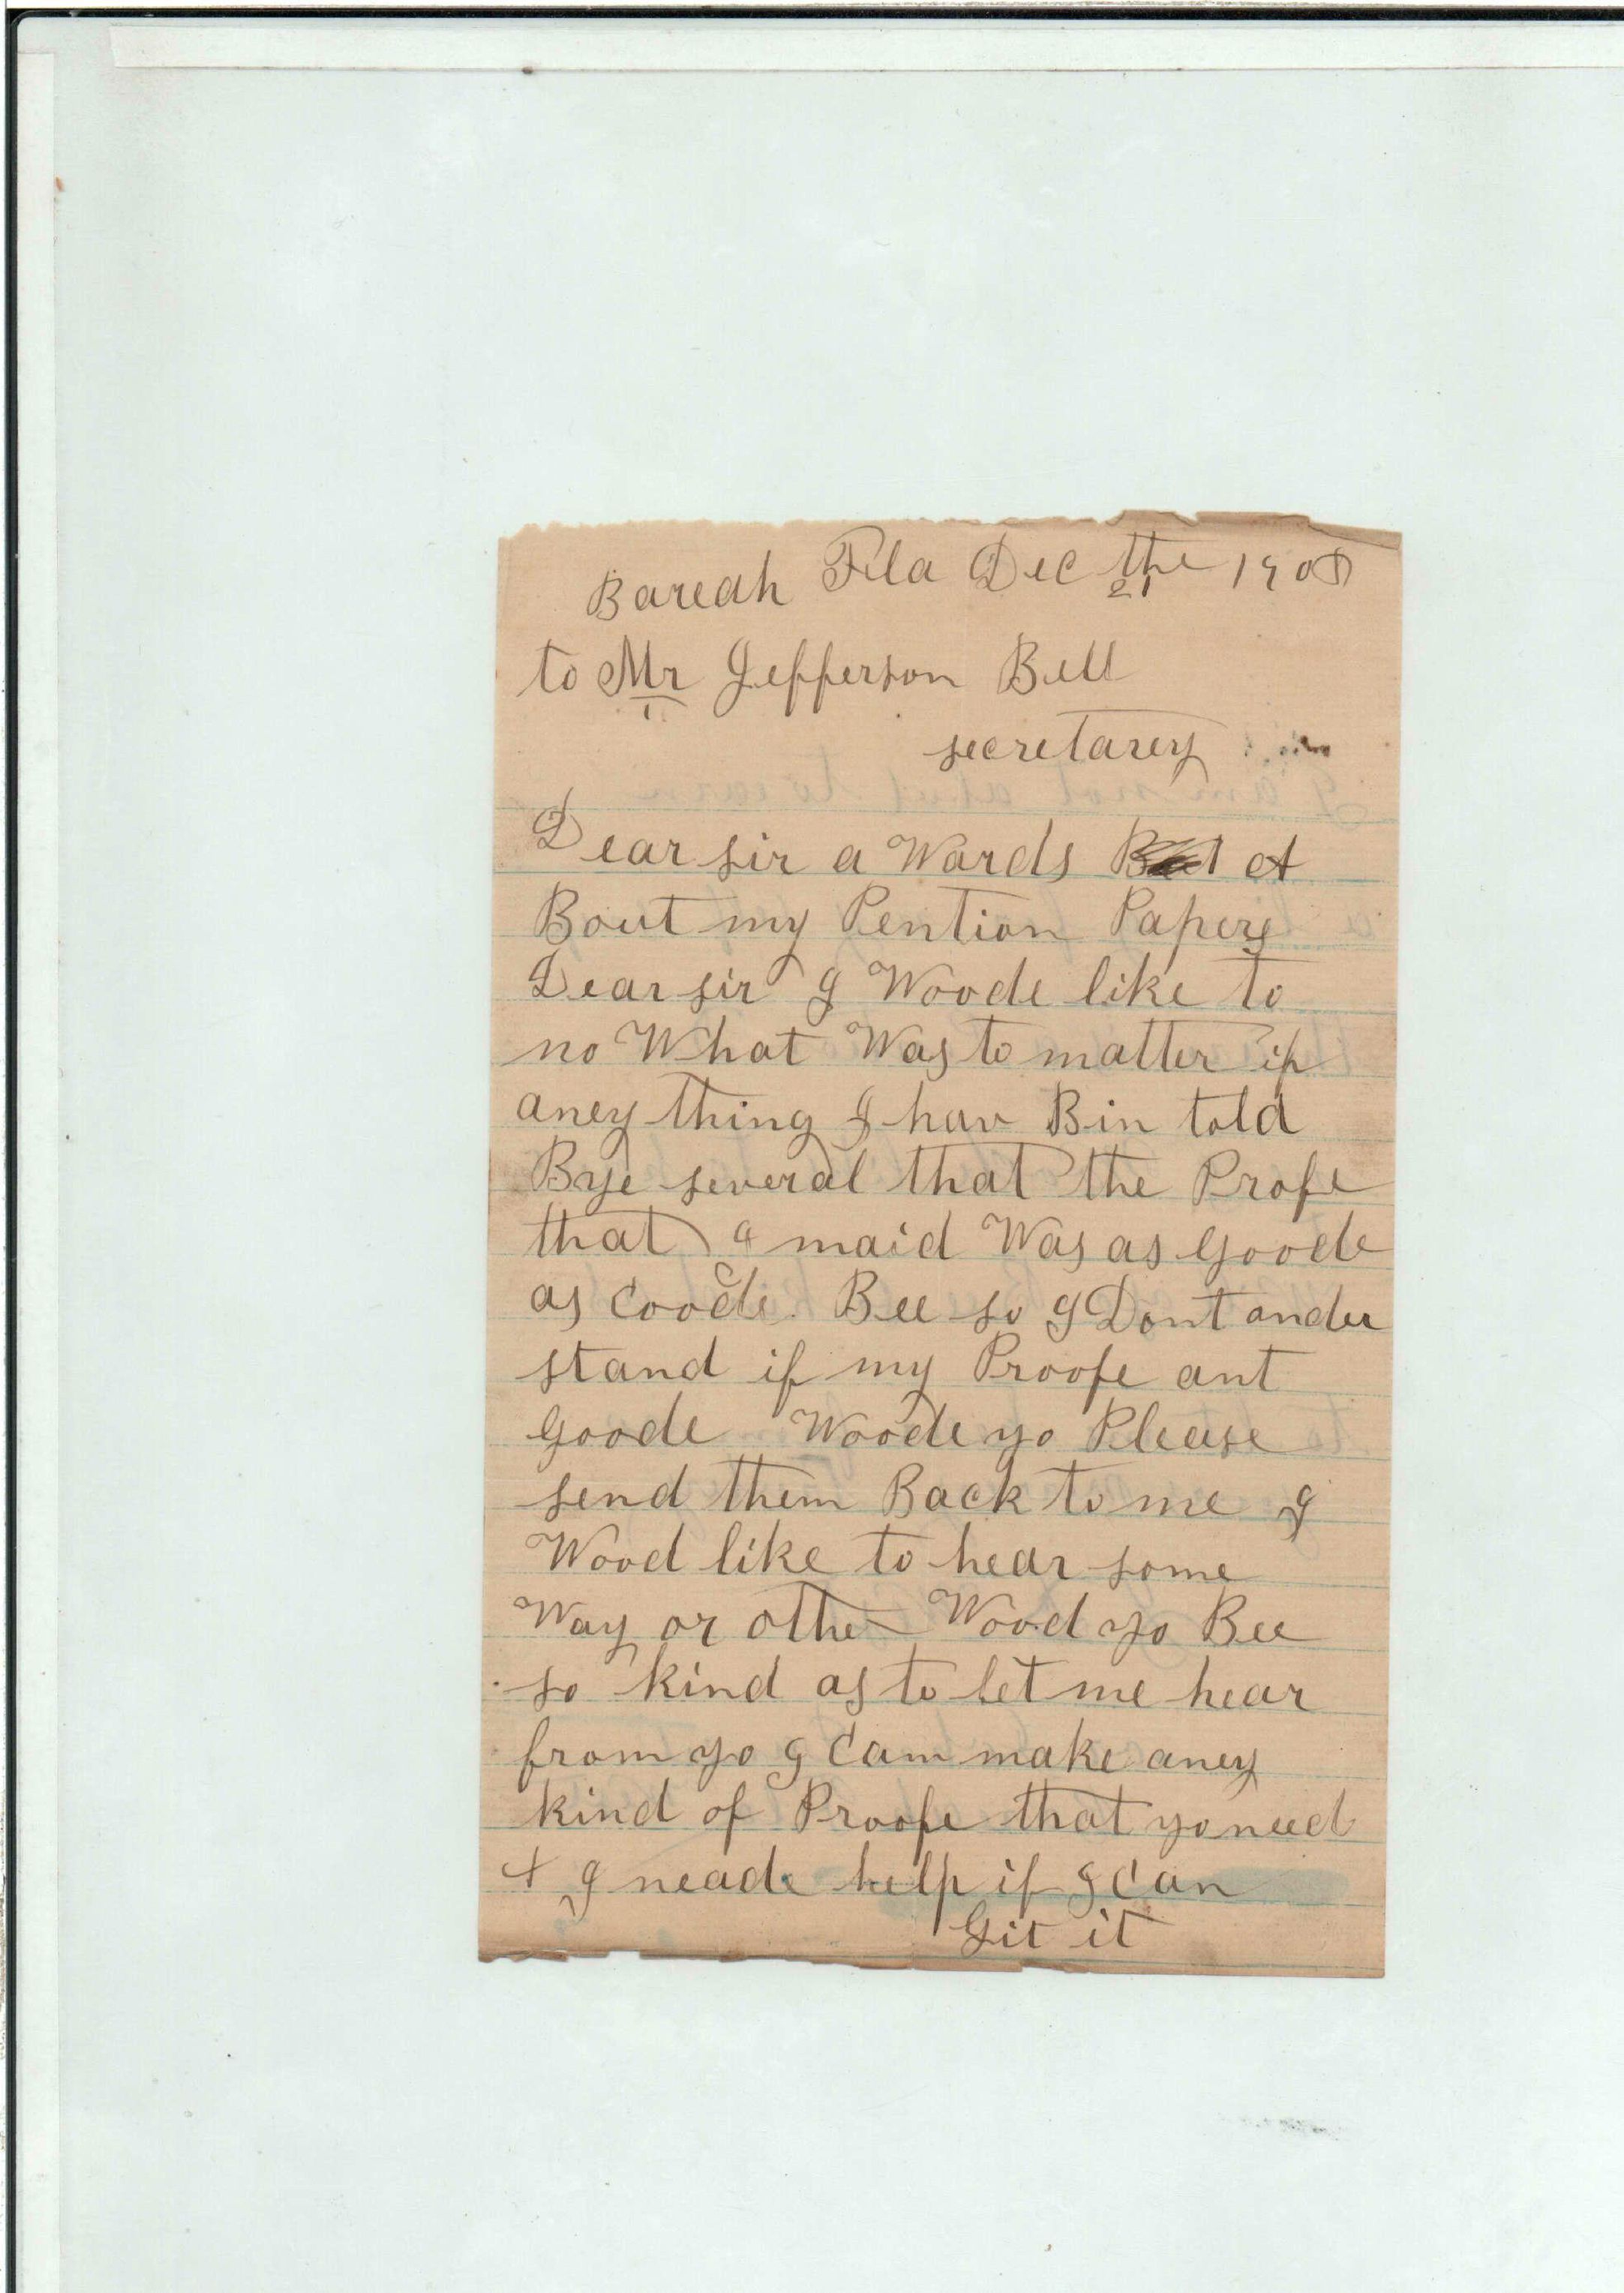 Bareah Fla Dec the 21 1908
to Mr Jefferson Bell
secretarey
Dear sir a Wards A
Bout my Pention Papers
Dear sir I Woode like to
no What Was to matter if
aney thing I hav Bin told
Bye several that the Profe
that I maid Was as Goode
as Coode Bee so I Dont ander
stand if my Proofe ant
Goode Woode yo Please
send them Back to me I
Wood like to hear some
Way or other Wood yo Bee
so kind as to let me hear
from yo I Cam make aney
kind of Proofe that yo need
& I neade help if I Can
Git it